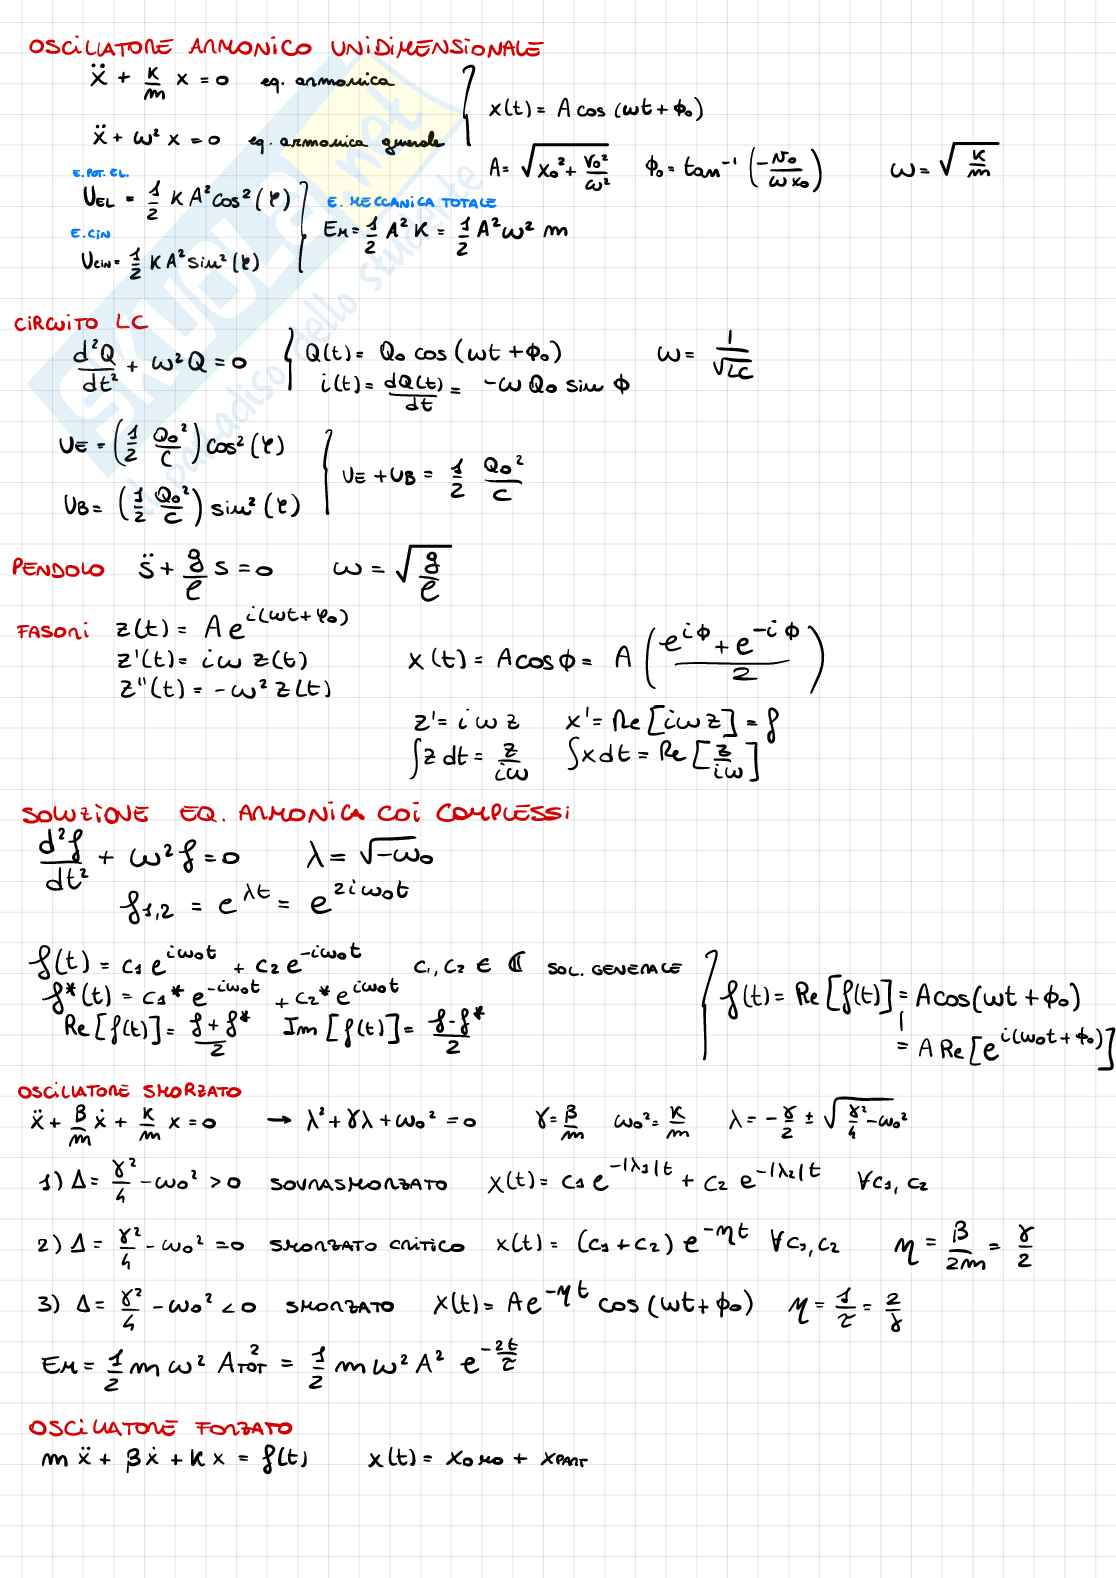 OSCILLATORE ARMONICO UNIDIMENSIONALE
ẍ + K/m x = 0 eq. armonica
ẍ + ω² x = 0 eq. armonica generale
x(t) = A cos (ωt + ϕ₀)
A = √(x₀² + v₀²/ω²) ϕ₀ = tan⁻¹ (-v₀/ωx₀) ω = √(K/m)
E. POT. EL.
U_EL = 1/2 K A² cos² (φ)
E. CIN
U_CIN = 1/2 K A² sin² (φ)
E. MECCANICA TOTALE
E_M = 1/2 A² K = 1/2 A² ω² m
CIRCUITO LC
d²Q/dt² + ω² Q = 0 Q(t) = Q₀ cos (ωt + ϕ₀) ω = 1/√LC
i(t) = dQ(t)/dt = -ω Q₀ sin ϕ
U_E = (1/2 Q₀²/C) cos² (φ)
U_B = (1/2 Q₀²/C) sin² (φ)
U_E + U_B = 1/2 Q₀²/C
PENDOLO s̈ + g/l s = 0 ω = √(g/l)
FASORI z(t) = A e^{i(ωt + φ₀)}
z'(t) = iω z(t)
z''(t) = -ω² z(t)
x(t) = A cos ϕ = A ((e^{iϕ} + e^{-iϕ})/2)
z' = iωz x' = Re [iωz] = f
∫z dt = z/iω ∫x dt = Re [z/iω]
SOLUZIONE EQ. ARMONICA COI COMPLESSI
d²f/dt² + ω² f = 0 λ = √-ω₀
f₁,₂ = e^{λt} = e^{2iω₀t}
f(t) = c₁ e^{iω₀t} + c₂ e^{-iω₀t} c₁, c₂ ∈ ℂ SOL. GENERALE
f*(t) = c₁* e^{-iω₀t} + c₂* e^{iω₀t}
Re [f(t)] = (f + f*)/2 Im [f(t)] = (f - f*)/2
f(t) = Re [f(t)] = A cos (ωt + ϕ₀)
= A Re [e^{i(ω₀t + ϕ₀)}]
OSCILLATORE SMORZATO
ẍ + β/m ẋ + K/m x = 0 → λ² + γλ + ω₀² = 0 γ = β/m ω₀² = K/m λ = -γ/2 ± √(γ²/4 - ω₀²)
1) Δ = γ²/4 - ω₀² > 0 SOVRASMORZATO x(t) = c₁ e^{-|λ₁|t} + c₂ e^{-|λ₂|t} ∀c₁, c₂
2) Δ = γ²/4 - ω₀² = 0 SMORZATO CRITICO x(t) = (c₁ + c₂) e^{-ηt} ∀c₁, c₂ η = β/2m = γ/2
3) Δ = γ²/4 - ω₀² < 0 SMORZATO x(t) = A e^{-ηt} cos (ωt + ϕ₀) η = 1/τ = 2/γ
E_M = 1/2 m ω² A_TOT² = 1/2 m ω² A² e^{-2t/τ}
OSCILLATORE FORZATO
m ẍ + β ẋ + K x = f(t) x(t) = x_OMO + x_PART